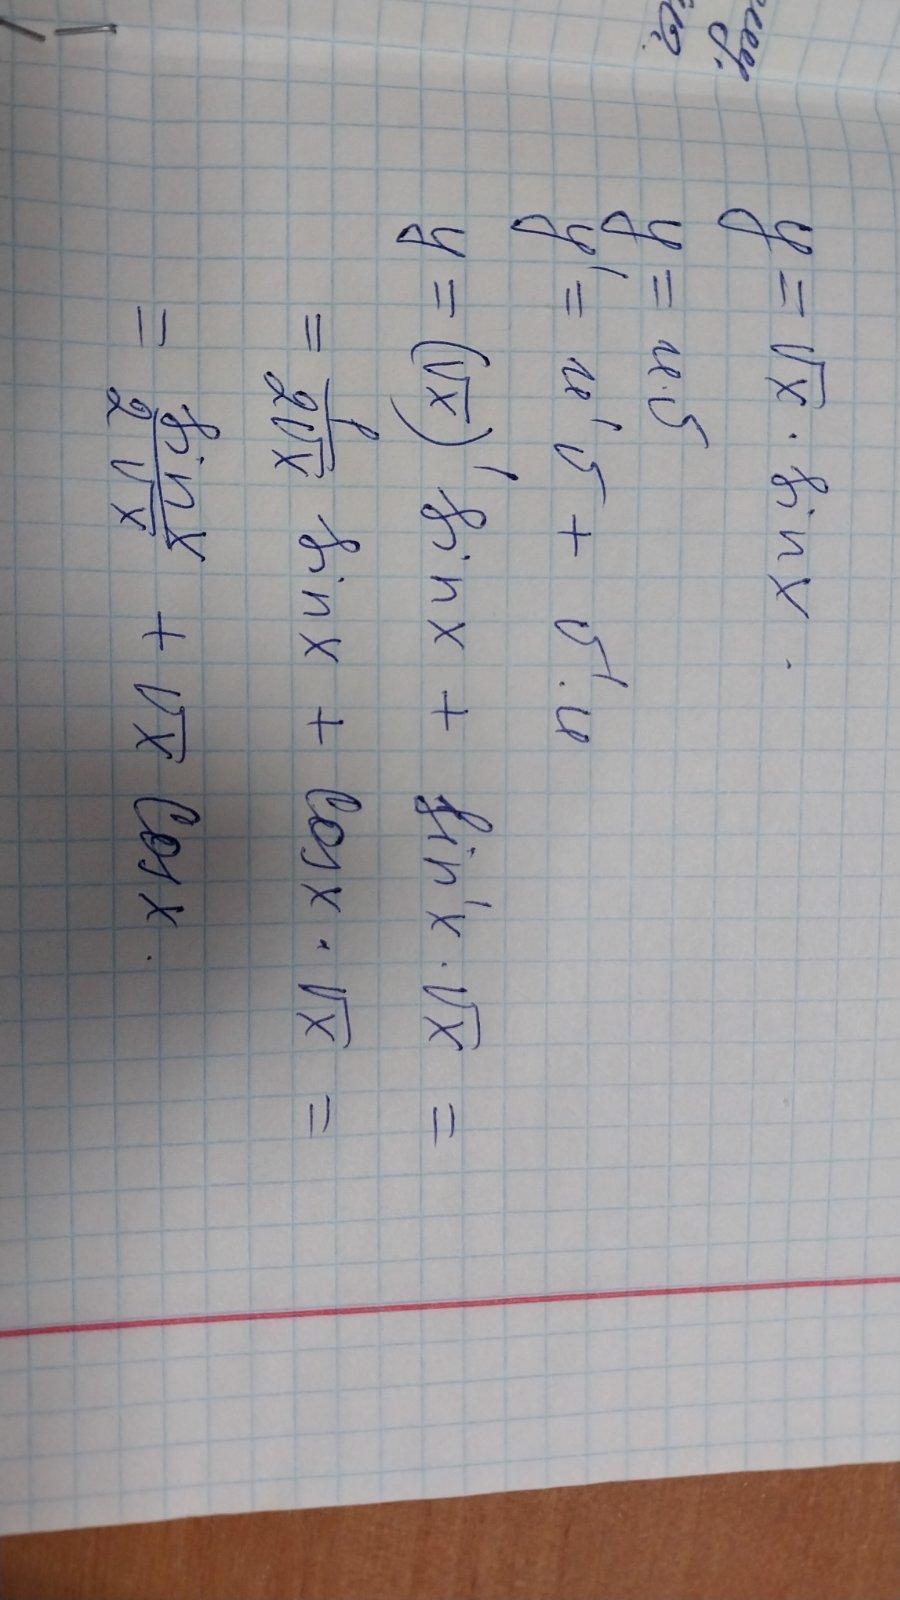 y = √x · sin x .
y = u·v
y' = u'v + v'·u
y = (√x)' sin x + sin'x · √x =
= 1/(2√x) sin x + cos x · √x =
= sin x/(2√x) + √x cos x .